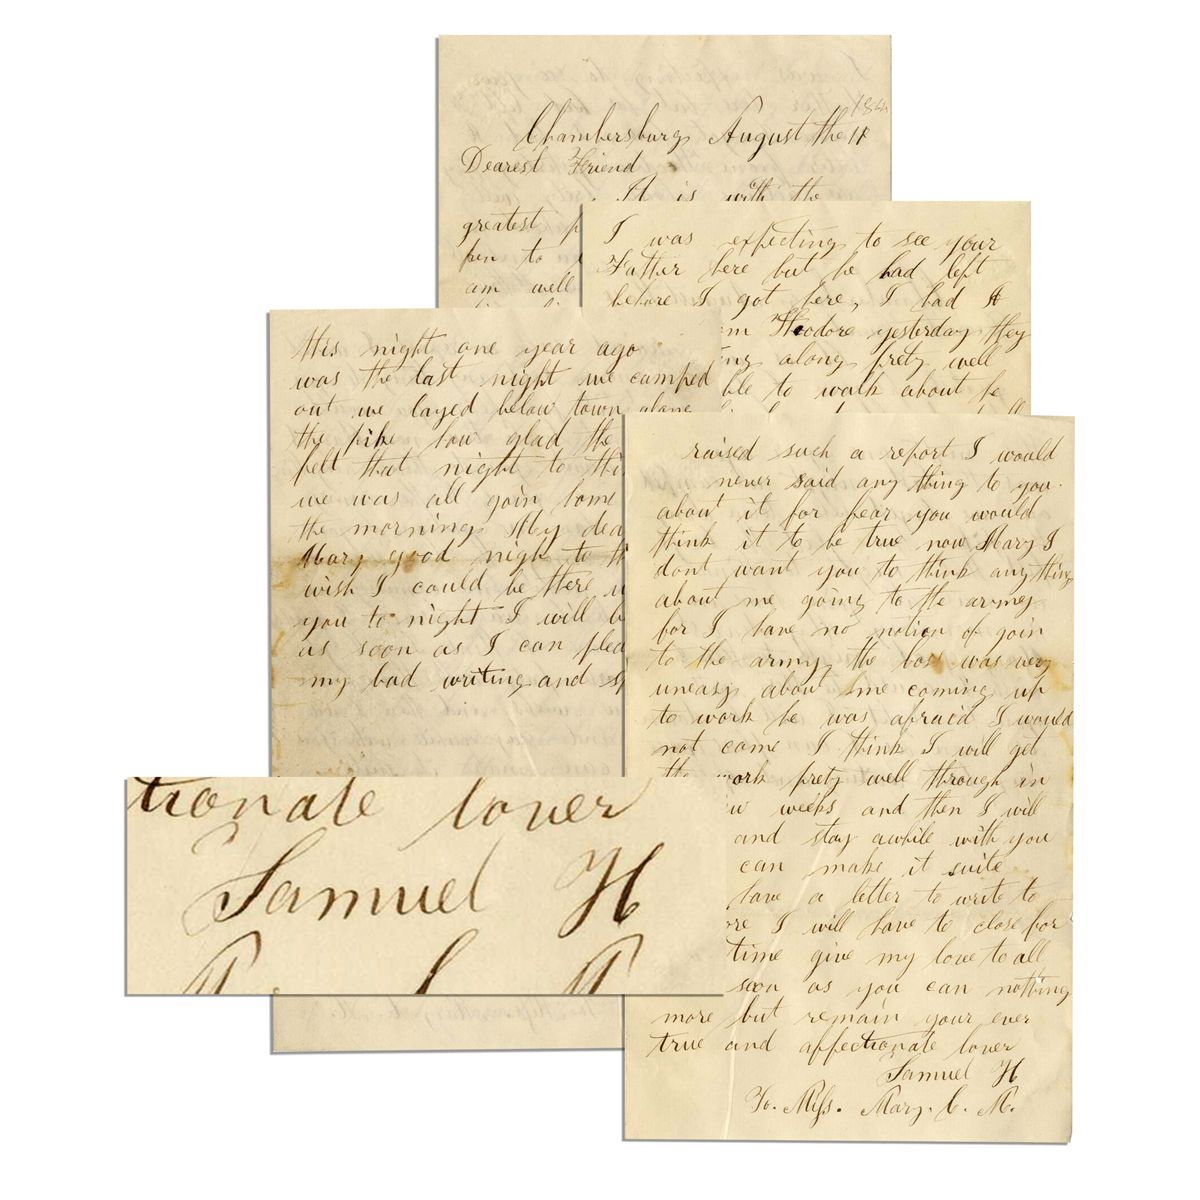 1864
Chambersburg August the 11
Dearest Friend
It is with the
greatest
pen to
am well
I was expecting to see your
Father here but he had left
before I got here, I had
Theodore yesterday they
along prety well
to walk about he
this night one year ago
was the last night we camped
out we layed below town alone
the pike how glad the
felt that night to
we was all goin home
the morning My
Mary good night to
wish I could be there
you to night I will
as soon as I can
my bad writing and
raised such a report I would
never said any thing to you.
about it for fear you would
think it to be true now Mary I
dont want you to think any thing
about me going to the army
for I have no notion of goin
to the army, the boss was very
uneasy about me coming up
to work he was afraid I would
not come I think I will get
the work prety well through in
weeks and then I will
and stay awhile with you
can make it suite
have a letter to write to
I will have to close for
time give my love to all
soon as you can nothing
more but remain your ever
true and affectionate lover
Samuel H
To. Miss. Mary. C. M.
tionate lover
Samuel H